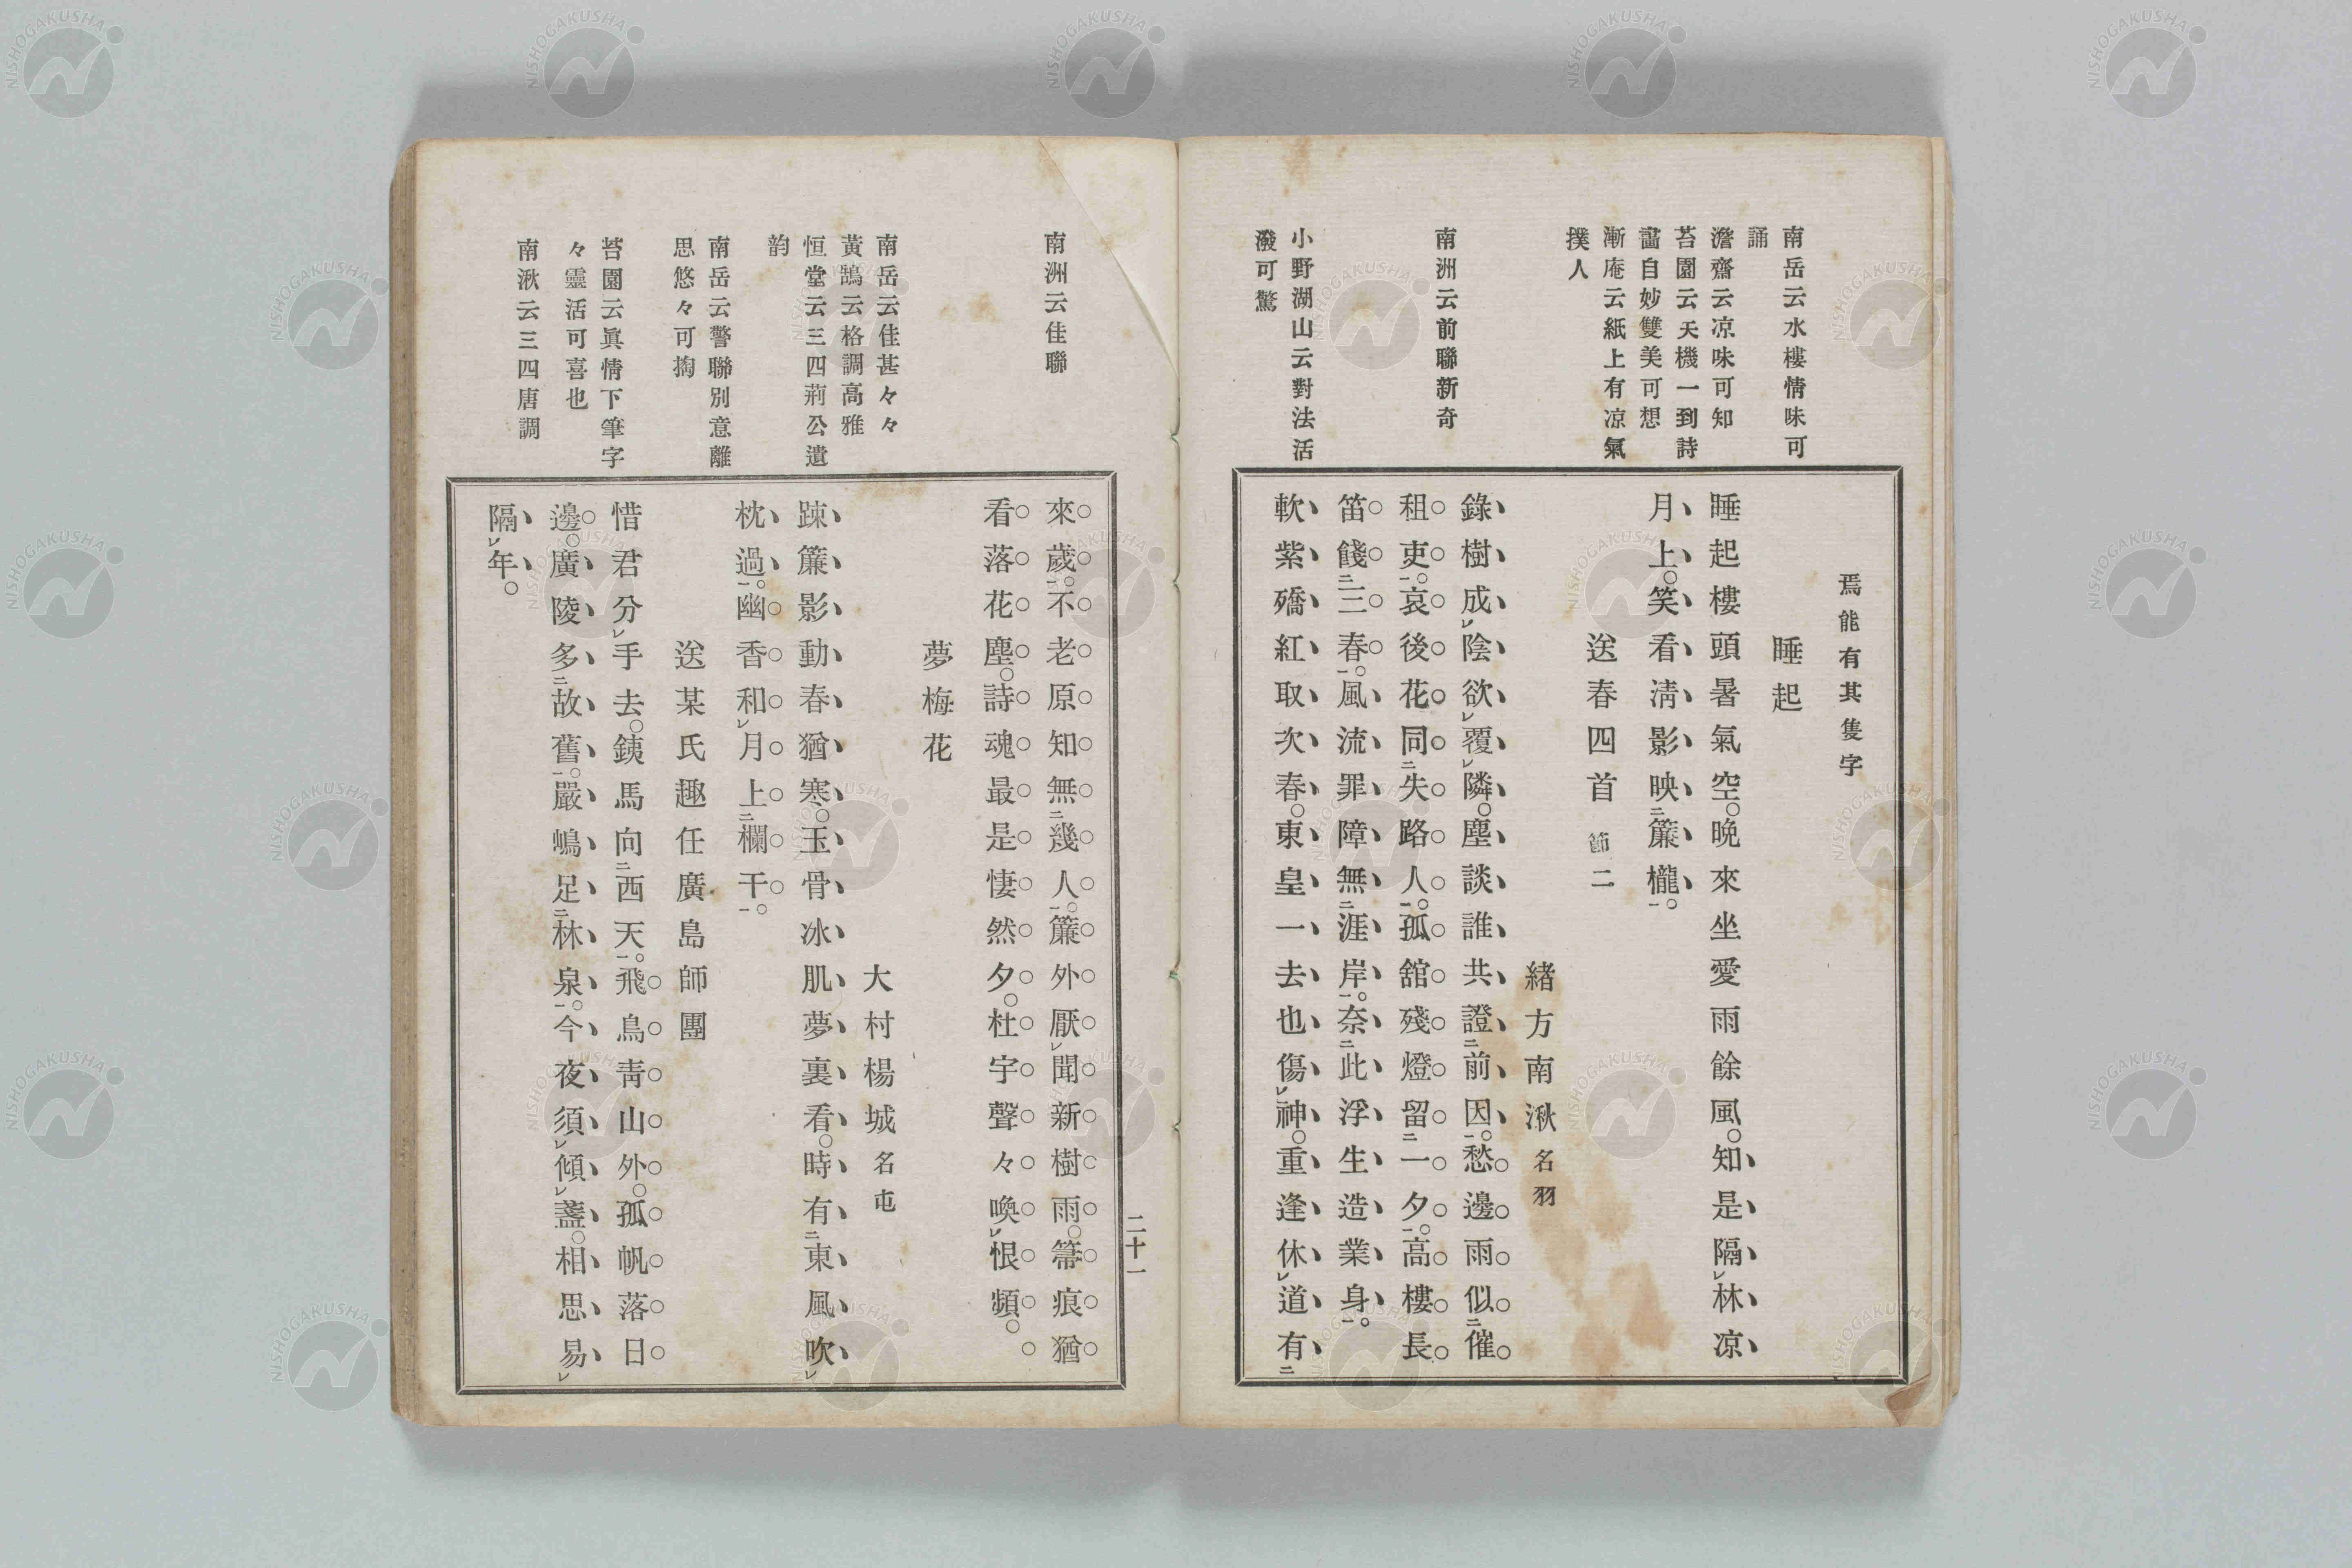 南岳云水樓情味可
誦
澹齋云凉味可知
苔園云天機一到詩
畵自妙雙美可想
漸庵云紙上有凉氣
撲人
南洲云前聯新奇
小野湖山云對法活
潑可驚
焉能有其隻字
睡起
睡起樓頭暑氣空。晩來坐愛雨餘風。知是隔レ林凉
月上。笑看淸影映二簾櫳一。
送春四首 節二
緒方南湫名羽
錄樹成レ陰欲レ覆レ隣。塵談誰共證二前因一。愁邊雨似二催
租吏一。哀後花同二失路人一。孤舘殘燈留二一夕一。高樓長
笛餞二三春一。風流罪障無二涯岸一。奈二此浮生造業身一。
軟紫殢紅取次春。東皇一去也傷レ神。重逢休レ道有二
南洲云佳聯
南岳云佳甚々々
黃鵠云格調高雅
恒堂云三四荊公遺
韵
南岳云警聯別意離
思悠々可掬
苔園云眞情下筆字
々靈活可喜也
南湫云三四唐調
來歲一。不老原知無二幾人一。簾外厭レ聞新樹雨。箒痕猶
看落花塵。詩魂最是悽然夕。杜宇聲々喚レ恨頻。
夢梅花
大村楊城名屯
踈簾影動春猶寒。玉骨冰肌夢裏看。時有二東風吹レ
枕過一。幽香和レ月上二欄干一。
送某氏趣任廣島師團
惜君分レ手去。鐵馬向二西天一。飛鳥靑山外。孤帆落日
邊。廣陵多二故舊一。嚴嶋足二林泉一。今夜須レ傾レ盞。相思易レ
隔レ年。
二十一
NISHOGAKUSHA